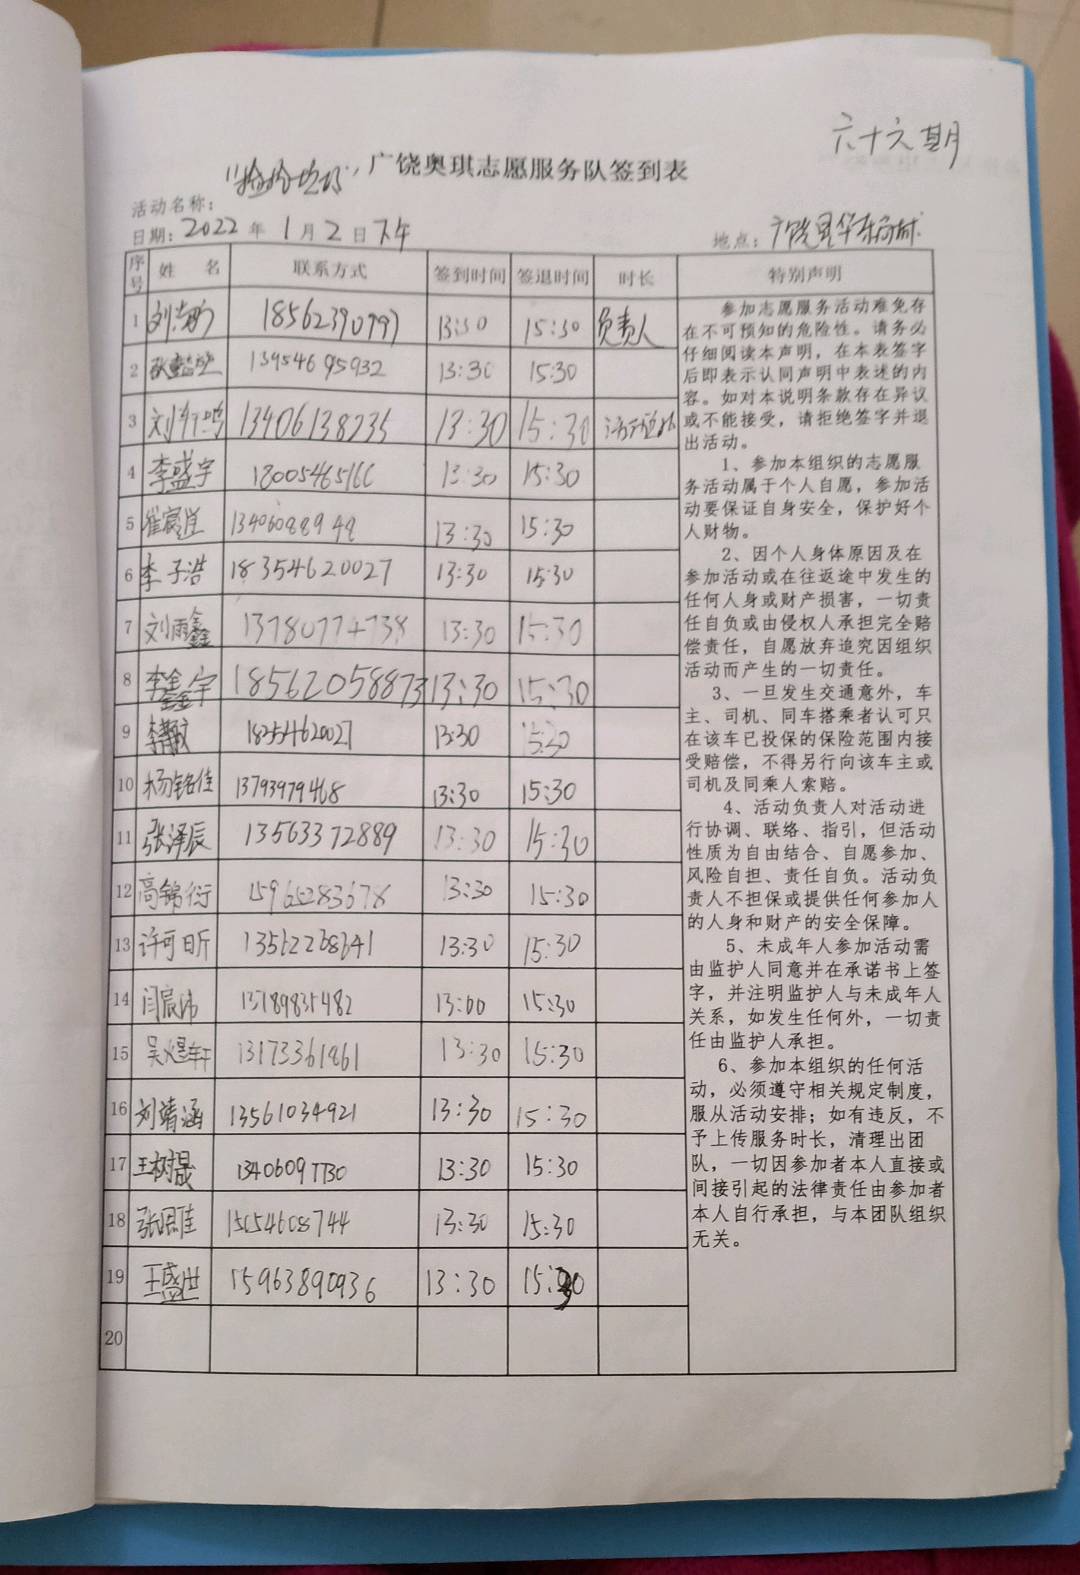 六十六期
广饶奥琪志愿服务队签到表
活动名称：
日期：2022年1月2日下午 地点：广饶
序号 姓名 联系方式 签到时间 签退时间 时长 特别声明
1 18562390997 13:30 15:30 负责人
2 13954695932 13:30 15:30
3 13406138235 13:30 15:30
4 李盛宇 18005465166 13:30 15:30
5 13:30 15:30
6 李子浩 18354620027 13:30 15:30
7 刘雨鑫 13780774738 13:30 15:30
8 李鑫宇 18562058873 13:30 15:30
9 13:30 15:30
10 杨铭佳 13793979468 13:30 15:30
11 张泽辰 13563372889 13:30 15:30
12 高锦衍 15965283678 13:30 15:30
13 许可昕 13562268641 13:30 15:30
14 闫宸沛 13:00 15:30
15 吴煜轩 13173361861 13:30 15:30
16 刘靖涵 13561034921 13:30 15:30
17 王树晟 13406097730 13:30 15:30
18 张恩佳 15054608744 13:30 15:30
19 王盛世 15963890936 13:30 15:30
20
参加志愿服务活动难免存
在不可预知的危险性。请务必
仔细阅读本声明，在本表签字
后即表示认同声明中表述的内
容。如对本说明条款存在异议
或不能接受，请拒绝签字并退
出活动。
1、参加本组织的志愿服
务活动属于个人自愿，参加活
动要保证自身安全，保护好个
人财物。
2、因个人身体原因及在
参加活动或在往返途中发生的
任何人身或财产损害，一切责
任自负或由侵权人承担完全赔
偿责任，自愿放弃追究因组织
活动而产生的一切责任。
3、一旦发生交通意外，车
主、司机、同车搭乘者认可只
在该车已投保的保险范围内接
受赔偿，不得另行向该车主或
司机及同乘人索赔。
4、活动负责人对活动进
行协调、联络、指引，但活动
性质为自由结合、自愿参加、
风险自担、责任自负。活动负
责人不担保或提供任何参加人
的人身和财产的安全保障。
5、未成年人参加活动需
由监护人同意并在承诺书上签
字，并注明监护人与未成年人
关系，如发生任何外，一切责
任由监护人承担。
6、参加本组织的任何活
动，必须遵守相关规定制度，
服从活动安排；如有违反，不
予上传服务时长，清理出团
队，一切因参加者本人直接或
间接引起的法律责任由参加者
本人自行承担，与本团队组织
无关。